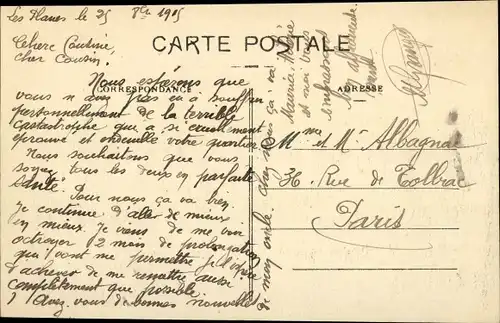 Les Planes le 25 8bre 1915
CARTE POSTALE
CORRESPONDANCE
ADRESSE
Chère Cousine,
cher Cousin.
Nous espérons que
vous n'avez pas eu à souffrir
personnellement de la terrible
catastrophe qui a si cruellement
éprouvé et endeuillé votre quartier
Nous souhaitons que vous
soyez tous les deux en parfaite
santé.
Pour nous ça va bien.
Je continue d'aller de mieux
en mieux. Je viens de me voir
octroyer 2 mois de prolongation
qui vont me permettre j'espère
d'achever de me remettre aussi
complètement que possible.
Avez-vous de bonnes nouvelles
de mon oncle. ça va
Maurice
et moi vous
embrassons
bien affectueuse
ment
Mme et Mr Albagnac
36, Rue de Tolbiac
Paris